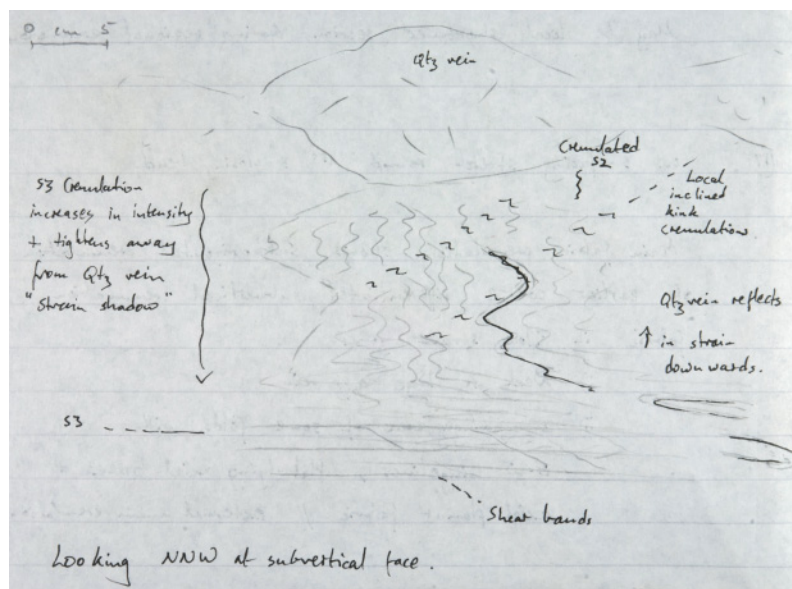 0 cm 5
Qtz vein
Crenulated
S2
Local
inclined
kink
crenulation.
S3 Crenulation
increases in intensity
+ tightens away
from Qtz vein
"Strain shadow"
Qtz vein reflects
↑ in strain
downwards.
S3
Shear bands
Looking NNW at subvertical face.